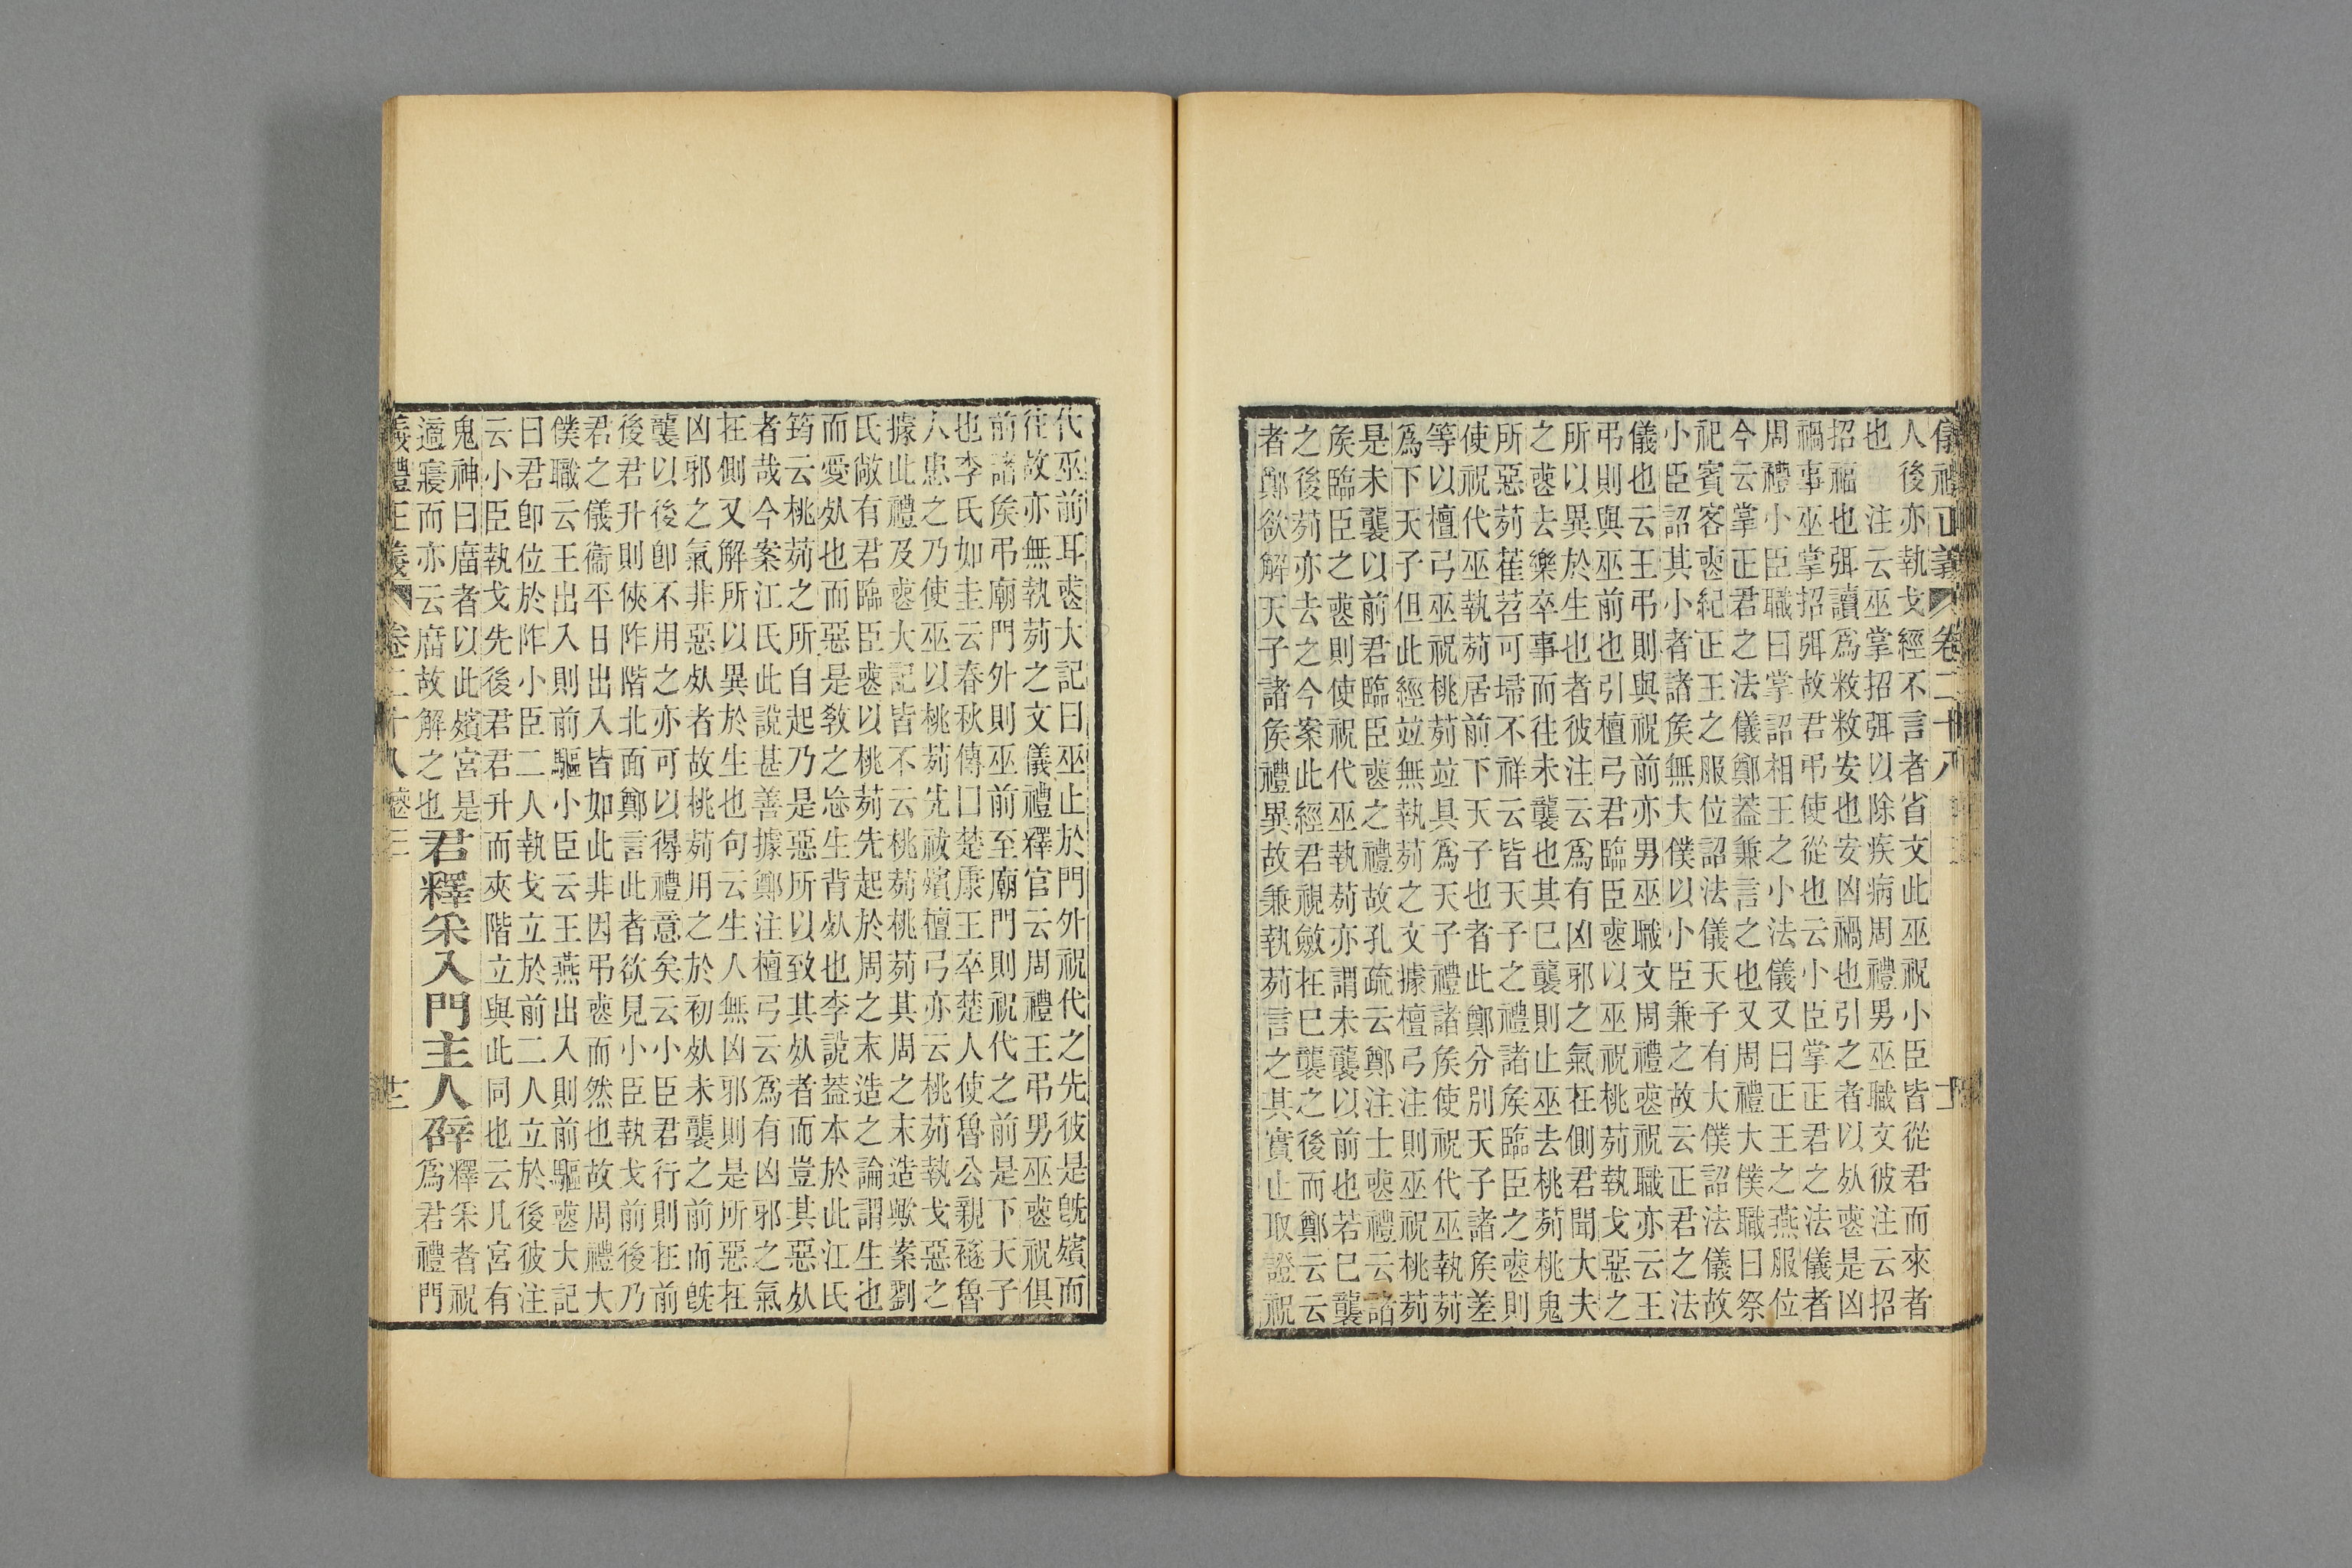 儀禮正義 卷二十八
人後亦執戈經不言者省文此巫祝小臣皆從君而來者
也 注云巫掌招弭以除疾病周禮男巫職文彼注云招
招福也弭讀爲敉敉安也安凶禍也引之者以𣦸喪是凶
禍事巫掌招弭故君弔使從也云小臣掌正君之法儀者
周禮小臣職曰掌詔相王之小法儀又曰正王之燕服位
今云掌正君之法儀鄭葢兼言之也又周禮大僕職曰祭
祀賓客喪紀正王之服位詔法儀天子有大僕詔法儀故
小臣詔其小者諸矦無大僕以小臣兼之故云正君之法
儀也云王弔則與祝前亦男巫職文周禮喪祝職亦云王
弔則與巫前也引檀弓君臨臣喪以巫祝桃茢執戈惡之
所以異於生也者彼注云爲有凶邪之氣在側君聞大夫
之喪去樂卒事而往未襲也其已襲則止巫去桃茢桃鬼
所惡茢萑苕可埽不祥云皆天子之禮諸矦臨臣之喪則
使祝代巫執茢居前下天子也者此鄭分別天子諸矦差
等以檀弓巫祝桃茢竝具爲天子禮諸矦使祝代巫執茢
爲下天子但此經竝無執茢之文據檀弓注則巫祝桃茢
是未襲以前君臨臣喪之禮故孔疏云鄭注士喪禮云諸
矦臨臣之喪則使祝代巫執茢亦謂未襲以前也若已襲
之後茢亦去之今案此經君視斂在已襲之後而鄭云云
者鄭欲解天子諸矦禮異故兼執茢言之其實止取證祝
代巫前耳喪大記曰巫止於門外祝代之先彼是旣殯而
往故亦無執茢之文儀禮釋官云周禮王弔男巫喪祝俱
前諸矦弔廟門外則巫前至廟門則祝代之前是下天子
也李氏如圭云春秋傳曰楚康王卒楚人使魯公親襚魯
人患之乃使巫以桃茢先祓殯檀弓亦云桃茢執戈惡之
據此禮及喪大記皆不云桃茢桃茢其周之末造歟案劉
氏敞有君臨臣喪以桃茢先起於周之末造之論謂生也
而愛𣦸也而惡是敎之忘生背𣦸也李說葢本於此江氏
筠云桃茢之所自起乃是惡所以致其𣦸者而豈其惡𣦸
者哉今案江氏此說甚善據鄭注檀弓云爲有凶邪之氣
在側又解所以異於生也句云生人無凶邪則是所惡在
凶邪之氣非惡𣦸者故桃茢用之於初𣦸未襲之前而旣
襲以後卽不用之亦可以得禮意矣云小臣君行則在前
後君升則俠阼階北面鄭言此者欲見小臣執戈前後乃
君之儀衞平日出入皆如此非因弔喪而然也故周禮大
僕職云王出入則前驅小臣云王燕出入則前驅喪大記
曰君卽位於阼小臣二人執戈立於前二人立於後彼注
云小臣執戈先後君君升而夾階立與此同也云凡宮有
鬼神曰庿者以此殯宮是
適寢而亦云庿故解之也
君釋采入門主人辟
釋采者祝
爲君禮門
儀禮正義 卷二十八 喪三